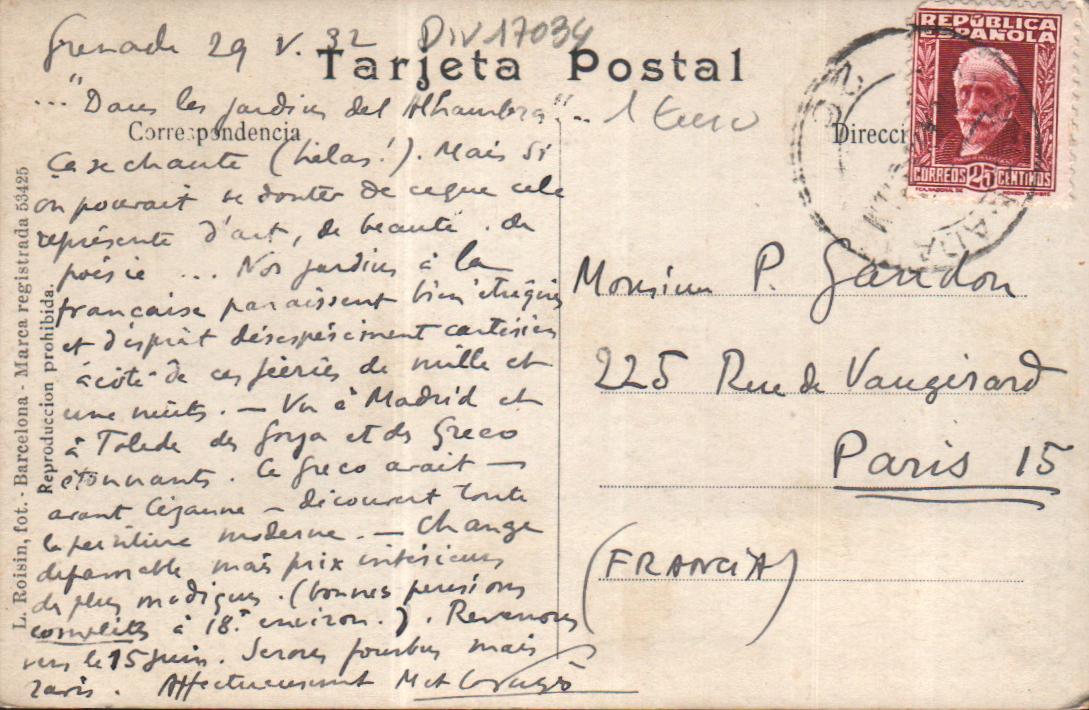 Grenade 29 V. 32
DIV17034
Tarjeta Postal
..."Dans les jardins del Alhambra"...
1 Euro
Correspondencia
Direcci
REPÚBLICA
ESPAÑOLA
CORREOS 25 CENTIMOS
Ça se chante (hélas!). Mais si
on pouvait se douter de ce que cela
représente d'art, de beauté, de
poésie ... Nos jardins à la
française paraissent bien étriqués
et d'esprit désespérément cartésien
à côté de ces féeries de mille et
une nuits. — Vu à Madrid et
à Tolède des Goya et des Greco
étonnants. Ce Greco avait —
avant Cézanne — découvert toute
la peinture moderne. — Change
défavorable mais prix intérieurs
des plus modiques. (bonnes pensions
complètes à 18.F environ.). Revenons
vers le 15 juin. Serons fourbus mais
ravis. Affectueusement M et
Monsieur P. Gandon
225 Rue de Vaugirard
Paris 15
(FRANCIA)
L. Roisin, fot. - Barcelona - Marca registrada 53425
Reproduccion prohibida.